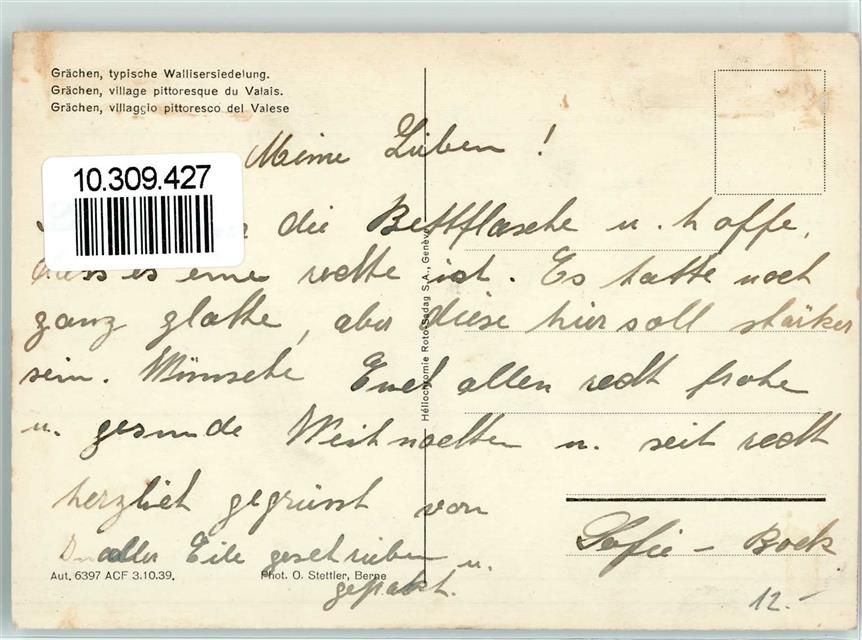 Grächen, typische Wallisersiedelung.
Grächen, village pittoresque du Valais.
Grächen, villaggio pittoresco del Valese
Meine Lieben !
10.309.427
die Bettflasche u. hoffe,
dass es eine rechte ist. Es hatte noch
ganz glatte, aber diese hier soll stärker
sein. Wünsche Euch allen recht frohe
u. gesunde Weihnachten u. seit recht
herzlich gegrüsst von
Sofie - Bock
In aller Eile geschrieben u.
gepackt.
Héliochromie Roto-Sadag S.A., Genève
Aut. 6397 ACF 3.10.39.
Phot. O. Stettler, Berne
12.-